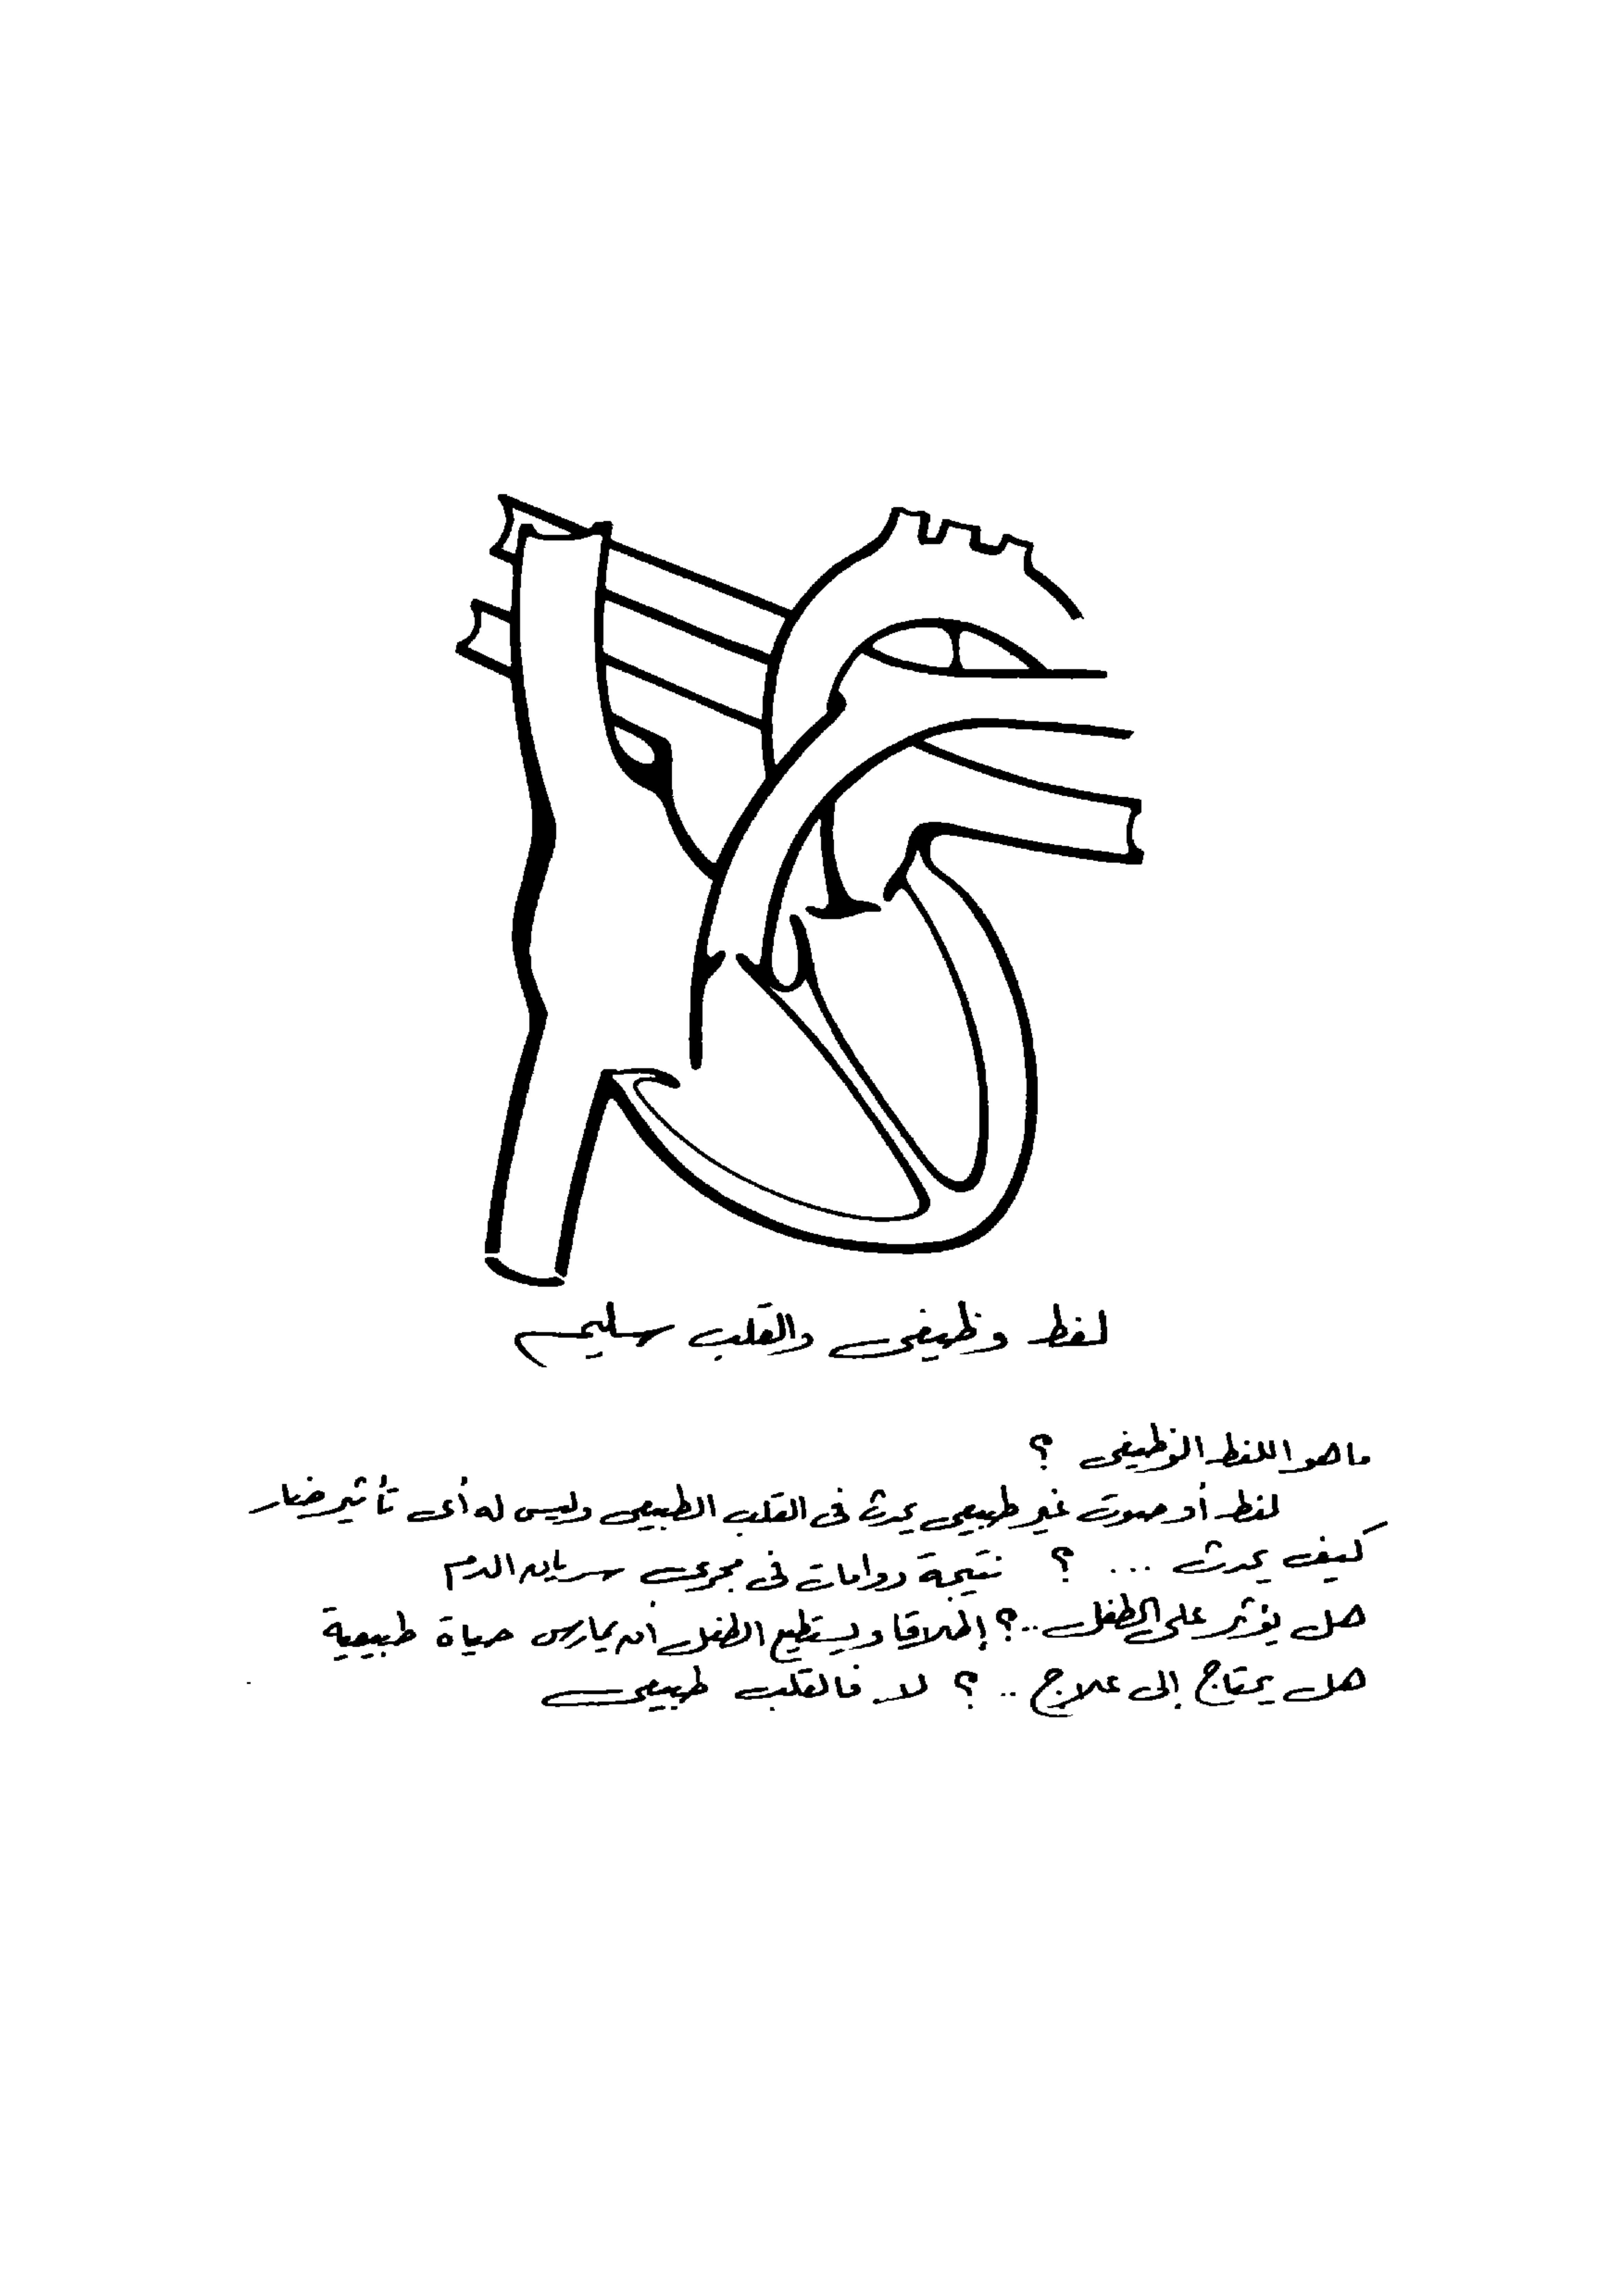 لغط وظيفى والقلب سليم
ما هو اللغط الوظيفى ؟
لغط أو صوت غير طبيعى يحدث فى القلب الطبيعى وليس له أى تأثير ضار
كيف يحدث ... ؟ نتيجة دوامات فى مجرى سريان الدم
هل يؤثر على الطفل ..؟ إطلاقا ويستطيع الطفل أن يمارس حياة طبيعية
هل يحتاج إلى علاج .. ؟ لا فالقلب طبيعى